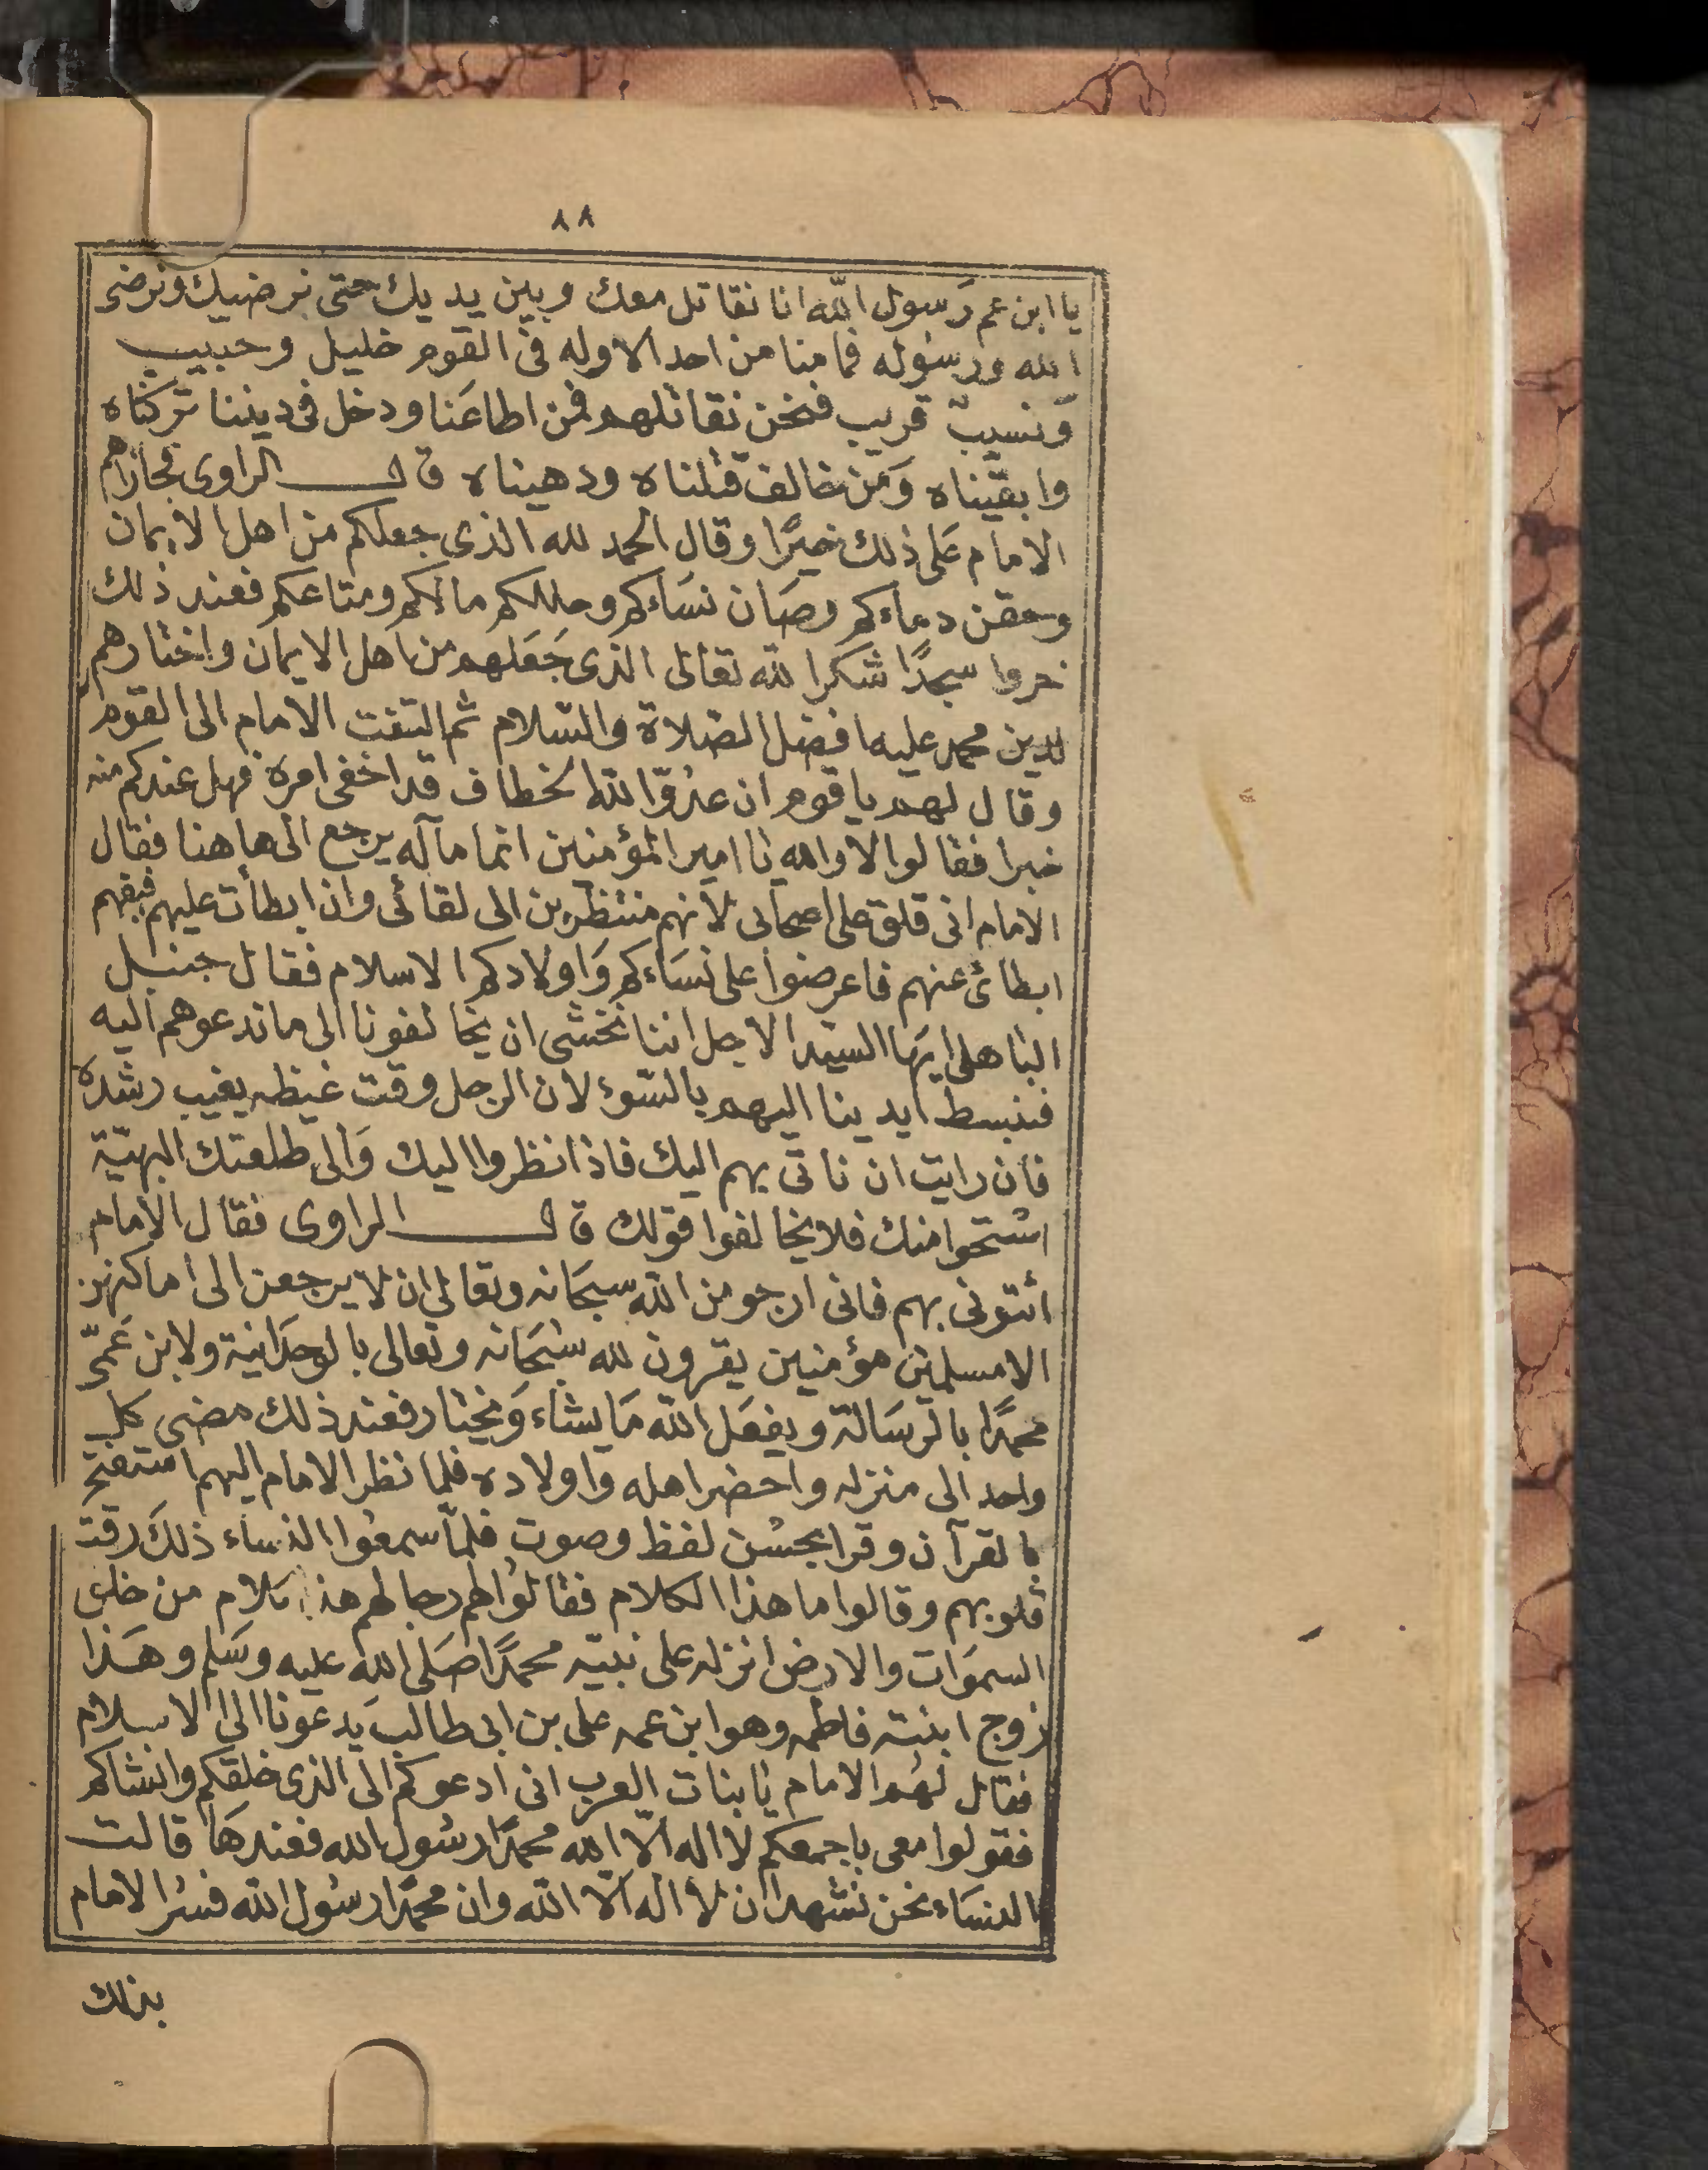 ٨٨
يا ابن عم رسول الله انا نقاتل معك وبين يديك حتى نرضيك ونرضى
الله ورسوله فما منا من احد الا وله فى القوم خليل وحبيب
ونسيب قريب فنحن نقاتلهم فمن اطاعنا ودخل فى ديننا تركناه
وابقيناه ومن خالف قتلناه ودهيناه قال الراوى فجازاهم
الامام على ذلك خيرًا وقال الحمد لله الذى جعلكم من اهل الايمان
وحقن دماءكم وصان نساءكم وحللكم مالكم ومتاعكم فعند ذلك
خروا سجدًا شكرا لله تعالى الذى جعلهم من اهل الايمان واختارهم
لدين محمد عليه افضل الصلاة والسلام ثم التفت الامام الى القوم
وقال لهم يا قوم ان عدوّ الله الخطاف قد اخفى امره فهل عندكم منه
خبرا فقالوا لا والله يا امير المؤمنين انما مآله يرجع الى هاهنا فقال
الامام انى قلق على اصحابى لانهم منتظرين الى لقائى وان ابطأت عليهم فيفهم
ابطائى عنهم فاعرضوا على نساءكم واولادكم الاسلام فقال جنبل
الباهلى ايها السيد الاجل اننا نخشى ان يخالفونا الى ما ندعوهم اليه
فنبسط ايدينا اليهم بالسوء لان الرجل وقت غيظه يغيب رشده
فان رايت ان ناتى بهم اليك فاذا نظروا اليك والى طلعتك البهيّة
استحوا منك فلا يخالفوا قولك قال الراوى فقال الامام
أئتونى بهم فانى ارجو من الله سبحانه وتعالى ان لا يرجعن الى اماكنهن
الا مسلمين مؤمنين يقرون لله سبحانه وتعالى بالوحدانية ولابن عمّى
محمدًا بالرسالة ويفعل الله ما يشاء ويختار فعند ذلك مضى كل
واحد الى منزله واحضر اهله واولاده فلما نظر الامام اليهم استفتح
بالقرآن وقرا بحسن لفظ وصوت فلمّا سمعوا النساء ذلك رقت
قلوبهم وقالوا ما هذا الكلام فقالوا لهم رجالهم هذا كلام من خلق
السموات والارض انزله على نبيّه محمدًا صلى الله عليه وسلم وهذا
زوج ابنته فاطمه وهو ابن عمه على بن ابى طالب يدعونا الى الاسلام
فقال لهم الامام يا بنات العرب انى ادعوكم الى الذى خلقكم وانشاكم
فقولوا معى باجمعكم لا اله الّا الله محمدًا رسول الله فعندها قالت
النساء نحن نشهد ان لا اله الّا الله وان محمدًا رسول الله فسُر الامام
بذلك